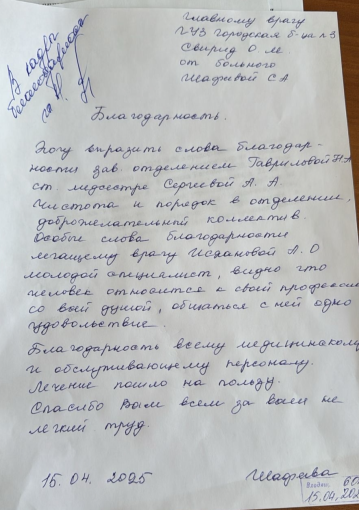 Главному врачу
ГУЗ Городская б-ца №3
Свирид О
от больного
С А
В кадры
Благодарность.
Хочу выразить слова благодар-
ности зав. отделением Гавриловой Н.А
ст. медсестре Сергеевой А. А.
Чистота и порядок в отделение,
доброжелательный коллектив.
Особые слова благодарности
лечащему врачу А. О
молодой специалист, видно что
человек относится к своей професси
со вый душой, общаться с ней одно
удовольствие.
Благодарность всему медицинскому
и обслуживающему персоналу.
Лечение пошло на пользу.
Спасибо Вам всем за ваш не
легкий труд.
15. 04. 2025
15.04.202